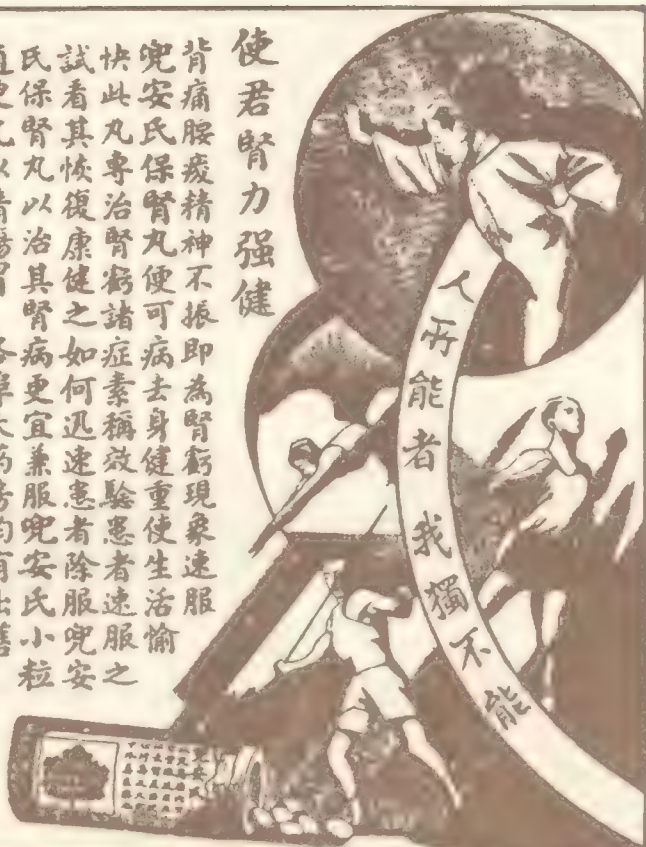 使君腎力强健
背痛腰痠精神不振即為腎虧現象速服
兜安氏保腎丸便可病去身健重使生活愉
快此丸專治腎虧諸症素稱效驗患者速服之
試看其恢復康健之如何迅速患者除服兜安
氏保腎丸以治其腎病更宜兼服兜安氏小粒
人所能者我獨不能